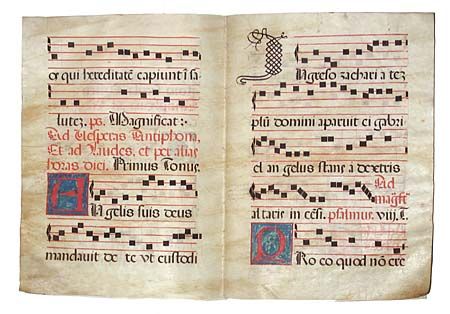 or qui hereditatē capiunt ī sa
lutez. ps. Magnificat:
Ad Vesperas Antiphona,
Et ad Laudes, et per alias
horas diei. Primus Tonus.
AN gelis suis deus
mandauit de te vt custodi
IN greso zachari a tez
plū domini aparuit ei gabri
el an gelus stans a dextris
Ad
altaris in psalmus. viij. t.
PRo eo quod nō cre